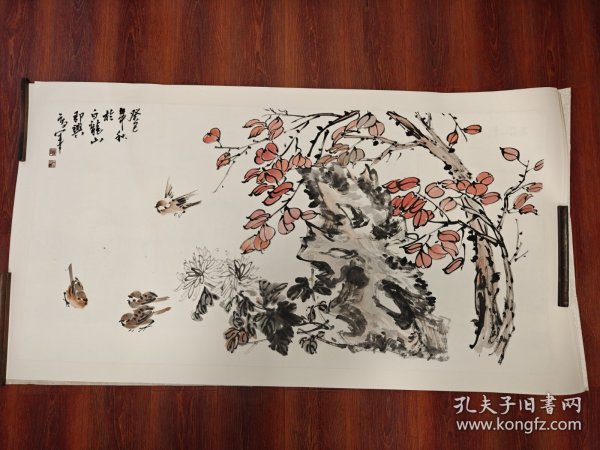 癸巳
年秋
於
白龍山
即興
孔夫子旧書网
www.kongfz.com